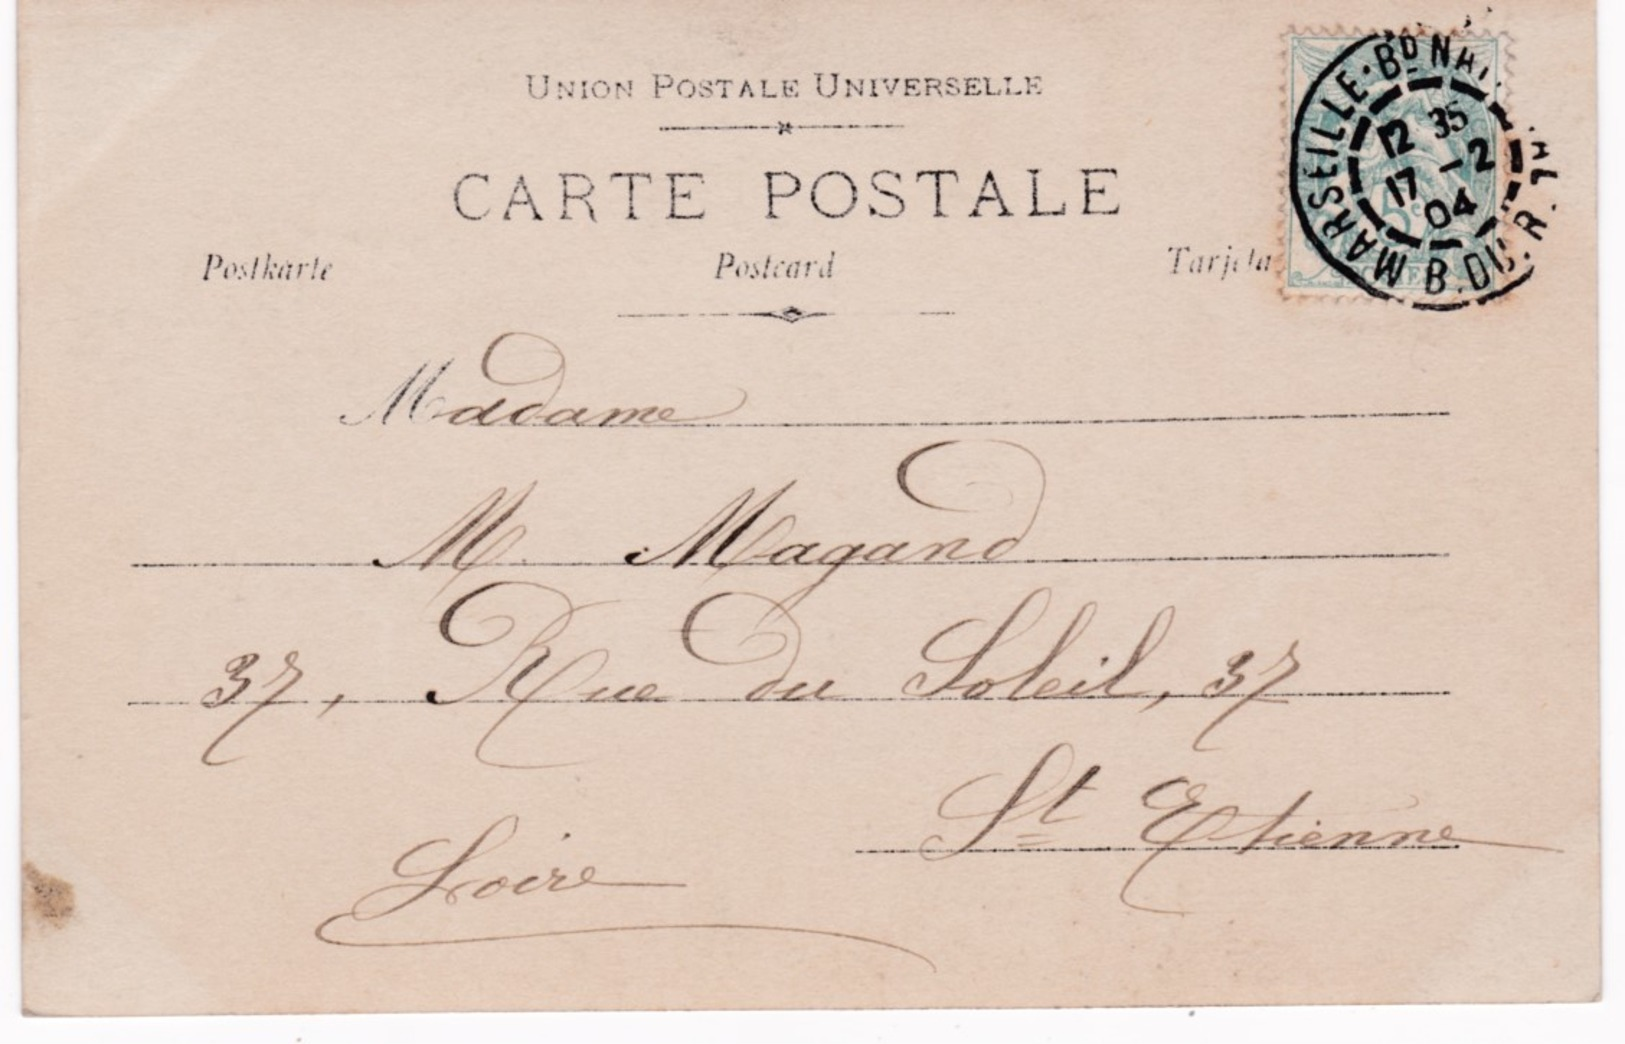 UNION POSTALE UNIVERSELLE
CARTE POSTALE
Postkarte Postcard Tarjeta
MARSEILLE · Bd
B. DU. R.
12 35
17 -2
04
5c
Madame
M. Magand
37, Rue du Soleil, 37
St Etienne
Loire